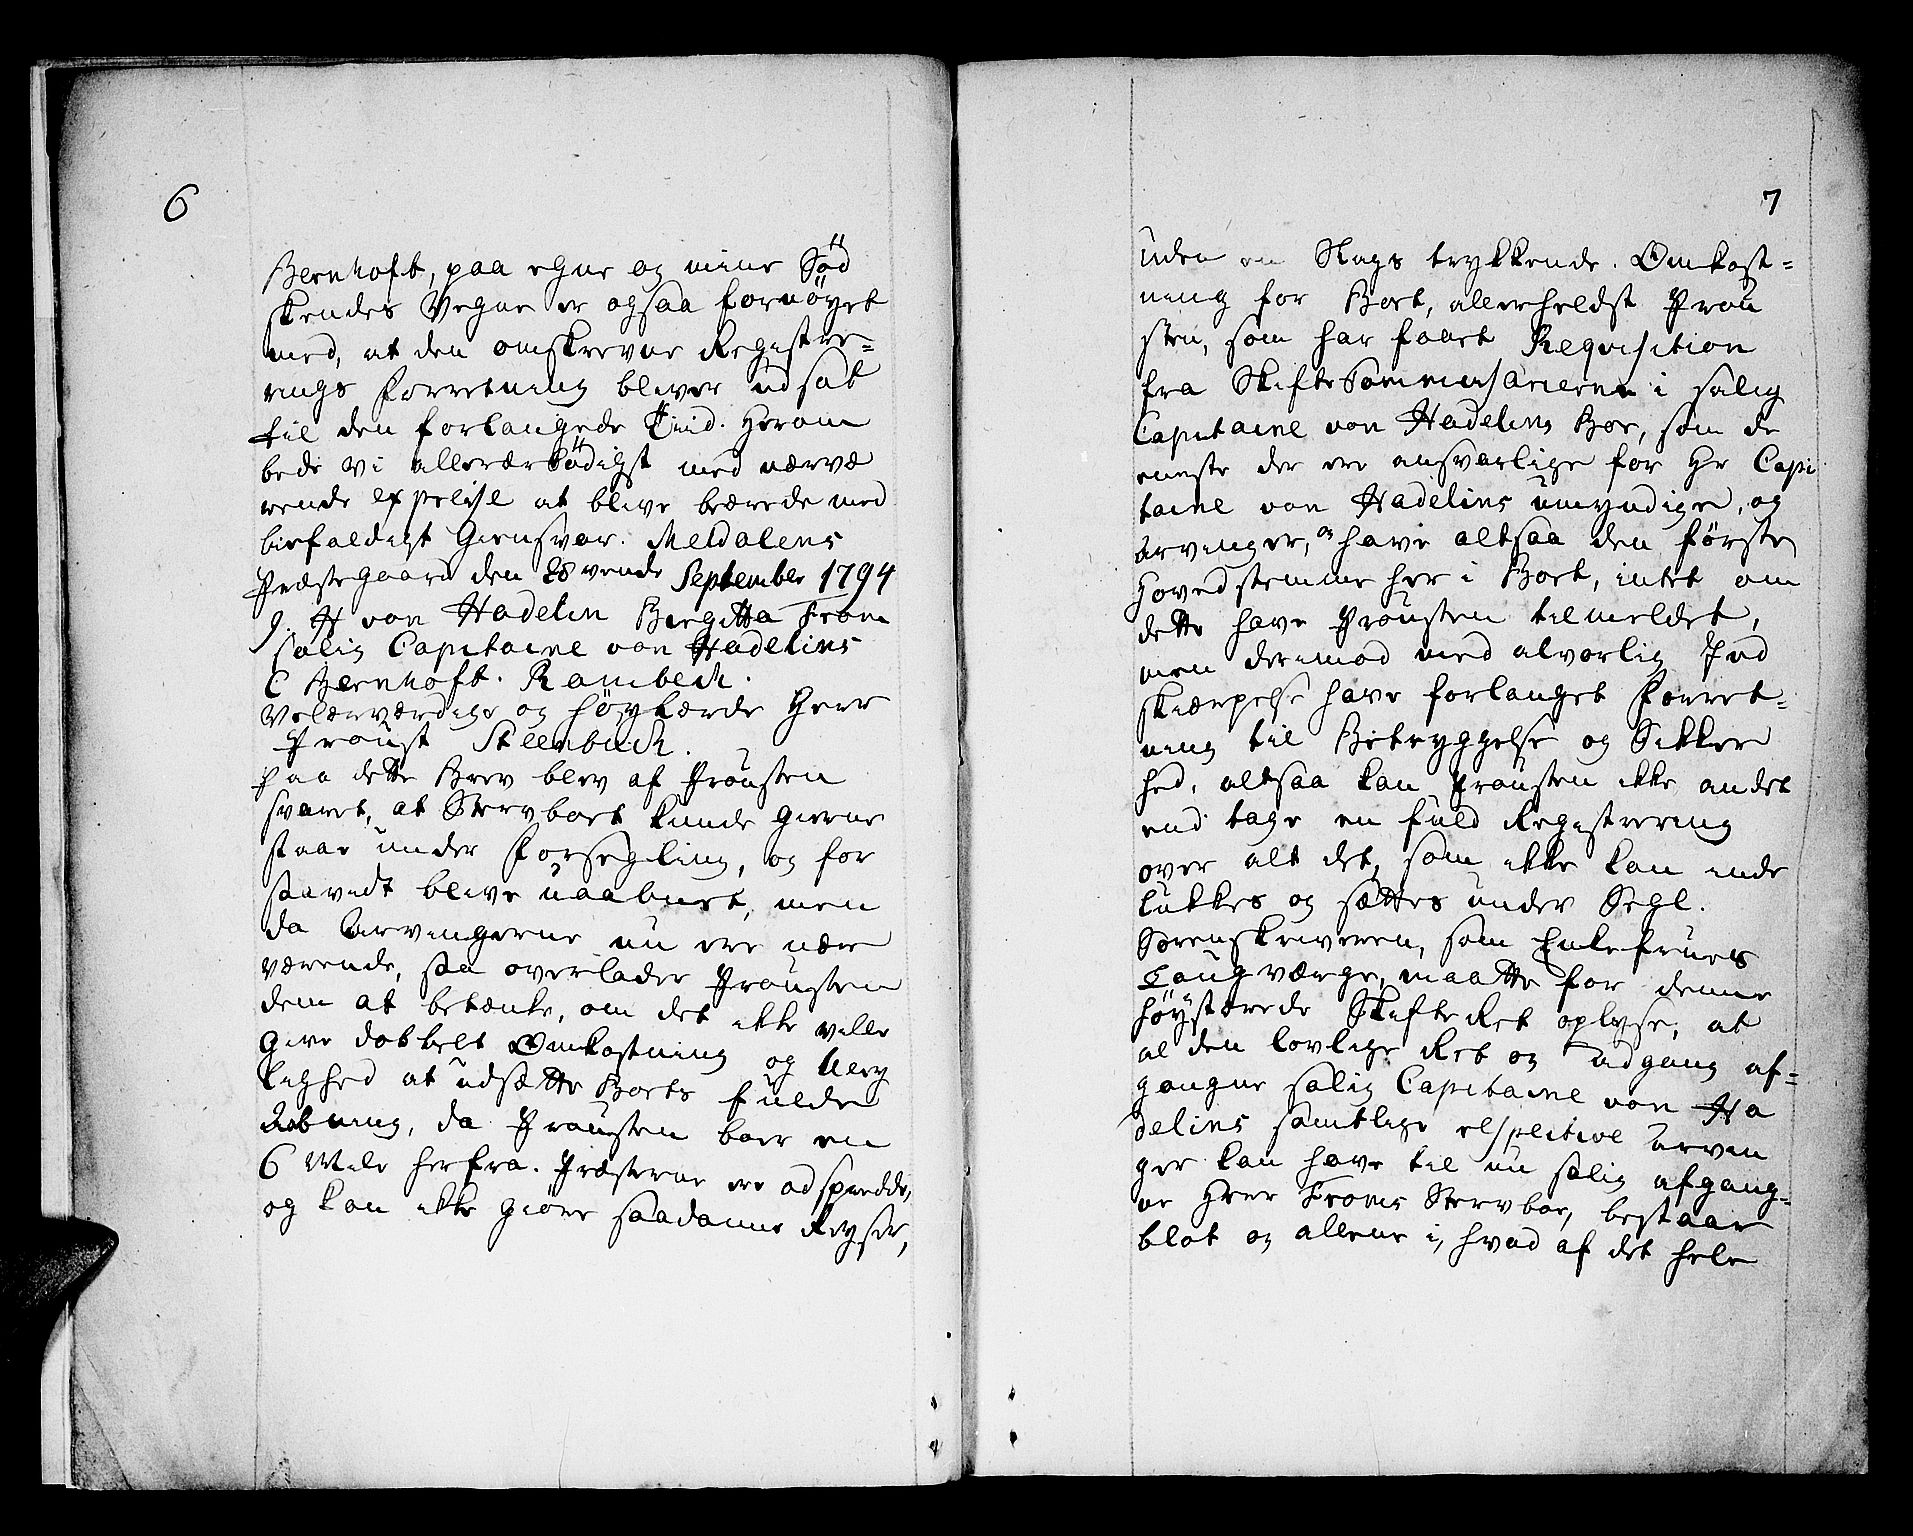 6
Bernhoft, paa egne og mine Sød
skendes Vegne er ogsaa fornöyet
med, at den omskrevne Registre=
rings Forretning bliver udsat
til den forlangede Tiid. Herom
bede vi allerærbödigst med nærvæ
rende expresse at blive beærede med
befaldigst Giensvar. Meldalens
Præstegaard den 28 vende September 1794
J. H von Hadelin Birgitta From
Salig Capitaine von Hadelins
C Bernhoft. Rambech.
Velærværdige og höylærde Herr
Proust Steenbuch.
Paa dette Brev blev af Prousten
svaret, at Stervboet kunde gierne
staae under Forsegling, og for
saavidt blive uaabnet, men
da Arvingerne nu ere nær
værende, saa overlader Prousten
dem at betænke, om det ikke ville
give dobbelt Omkostning og Uley
lighed at udsætte Boets fulde
Aabning, da Prousten boer en
6 Mile herfra. Præsterne ere adspredde,
og kan ikke giöre saadanne Reyser,
7
uden en Slags trykkende Omkost=
ning for Boet, allerheldst Prou
sten, som har faaet Requisition
fra SkifteCommissarierne i salig
Capitaine von Hadelins Boe, som de
eneste der ere ansvarlige for Hr Capi
taine von Hadelins umyndige, og
arvinger, og have altsaa den förste
Hovedstemme her i Boet, intet om
dette have Prousten tilmeldet,
men derimod med alvorlig Ind
skiærpelse have forlanget Forret=
ning til Betryggelse og Sikker
hed, altsaa kan Prousten ikke andet
end tage en fuld Registrering
over alt det, som ikke kan inde
lukkes og sættes under Segl.
Sorenskriveren, som Enkefruens
Laugværge, maatte for denne
höystærede SkifteRet oplyse, at
al den lovlige Ret og Adgang af=
gangne salig Capitaine von Ha
delins samtlige respective Arvin
ger kan have til nu salig afgang=
ne Herr Froms Stervboe, bestaaer
blot og allene i, hvad af det hele